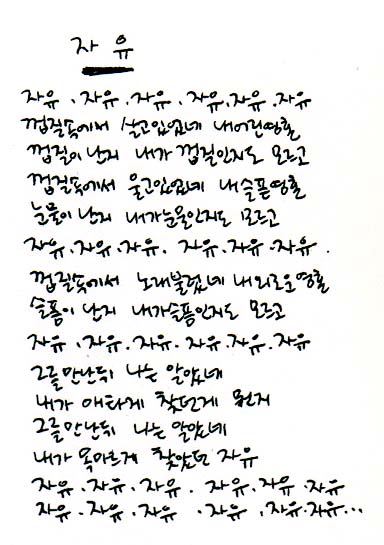 자유
자유, 자유, 자유, 자유, 자유, 자유
껍질속에서 살고있었네 내어린영혼
껍질이 난지 내가 껍질인지도 모르고
껍질속에서 울고있었네 내슬픈영혼
눈물이 난지 내가눈물인지도 모르고
자유, 자유, 자유, 자유, 자유, 자유.
껍질속에서 노래불렀네 내외로운영혼
슬픔이 난지 내가슬픔인지도 모르고
자유, 자유. 자유. 자유. 자유. 자유
그를만난뒤 나는 알았네
내가 애타게 찾던게 뭔지
그를만난뒤 나는 알았네
내가 목마르게 찾았던 자유
자유, 자유, 자유. 자유, 자유, 자유
자유. 자유. 자유. 자유, 자유. 자유...